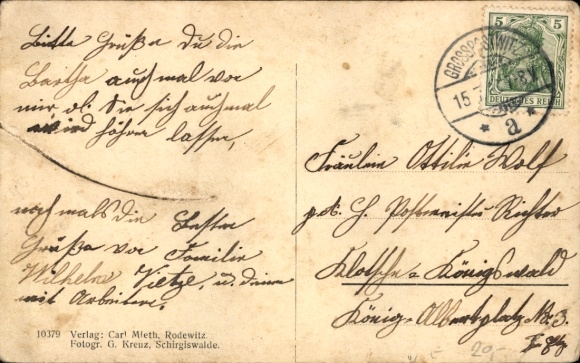 Bitte Grüße du die
Bertha auch mal von
mir ob Sie sich auch mal
wird hören lassen,
nochmals die Besten
Grüße von Familie
Wilhelm Vietze, u. deinen
mit Arbeitern.
10379 Verlag: Carl Mieth, Rodewitz.
Fotogr. G. Kreuz, Schirgiswalde.
5 5
DEUTSCHES REICH
15.
* a *
Fräulein Ottilie Wolf
pt. H. Postmeister Richter
Klotsche = Königswald
König = Albertplatz No. 3.
20.-